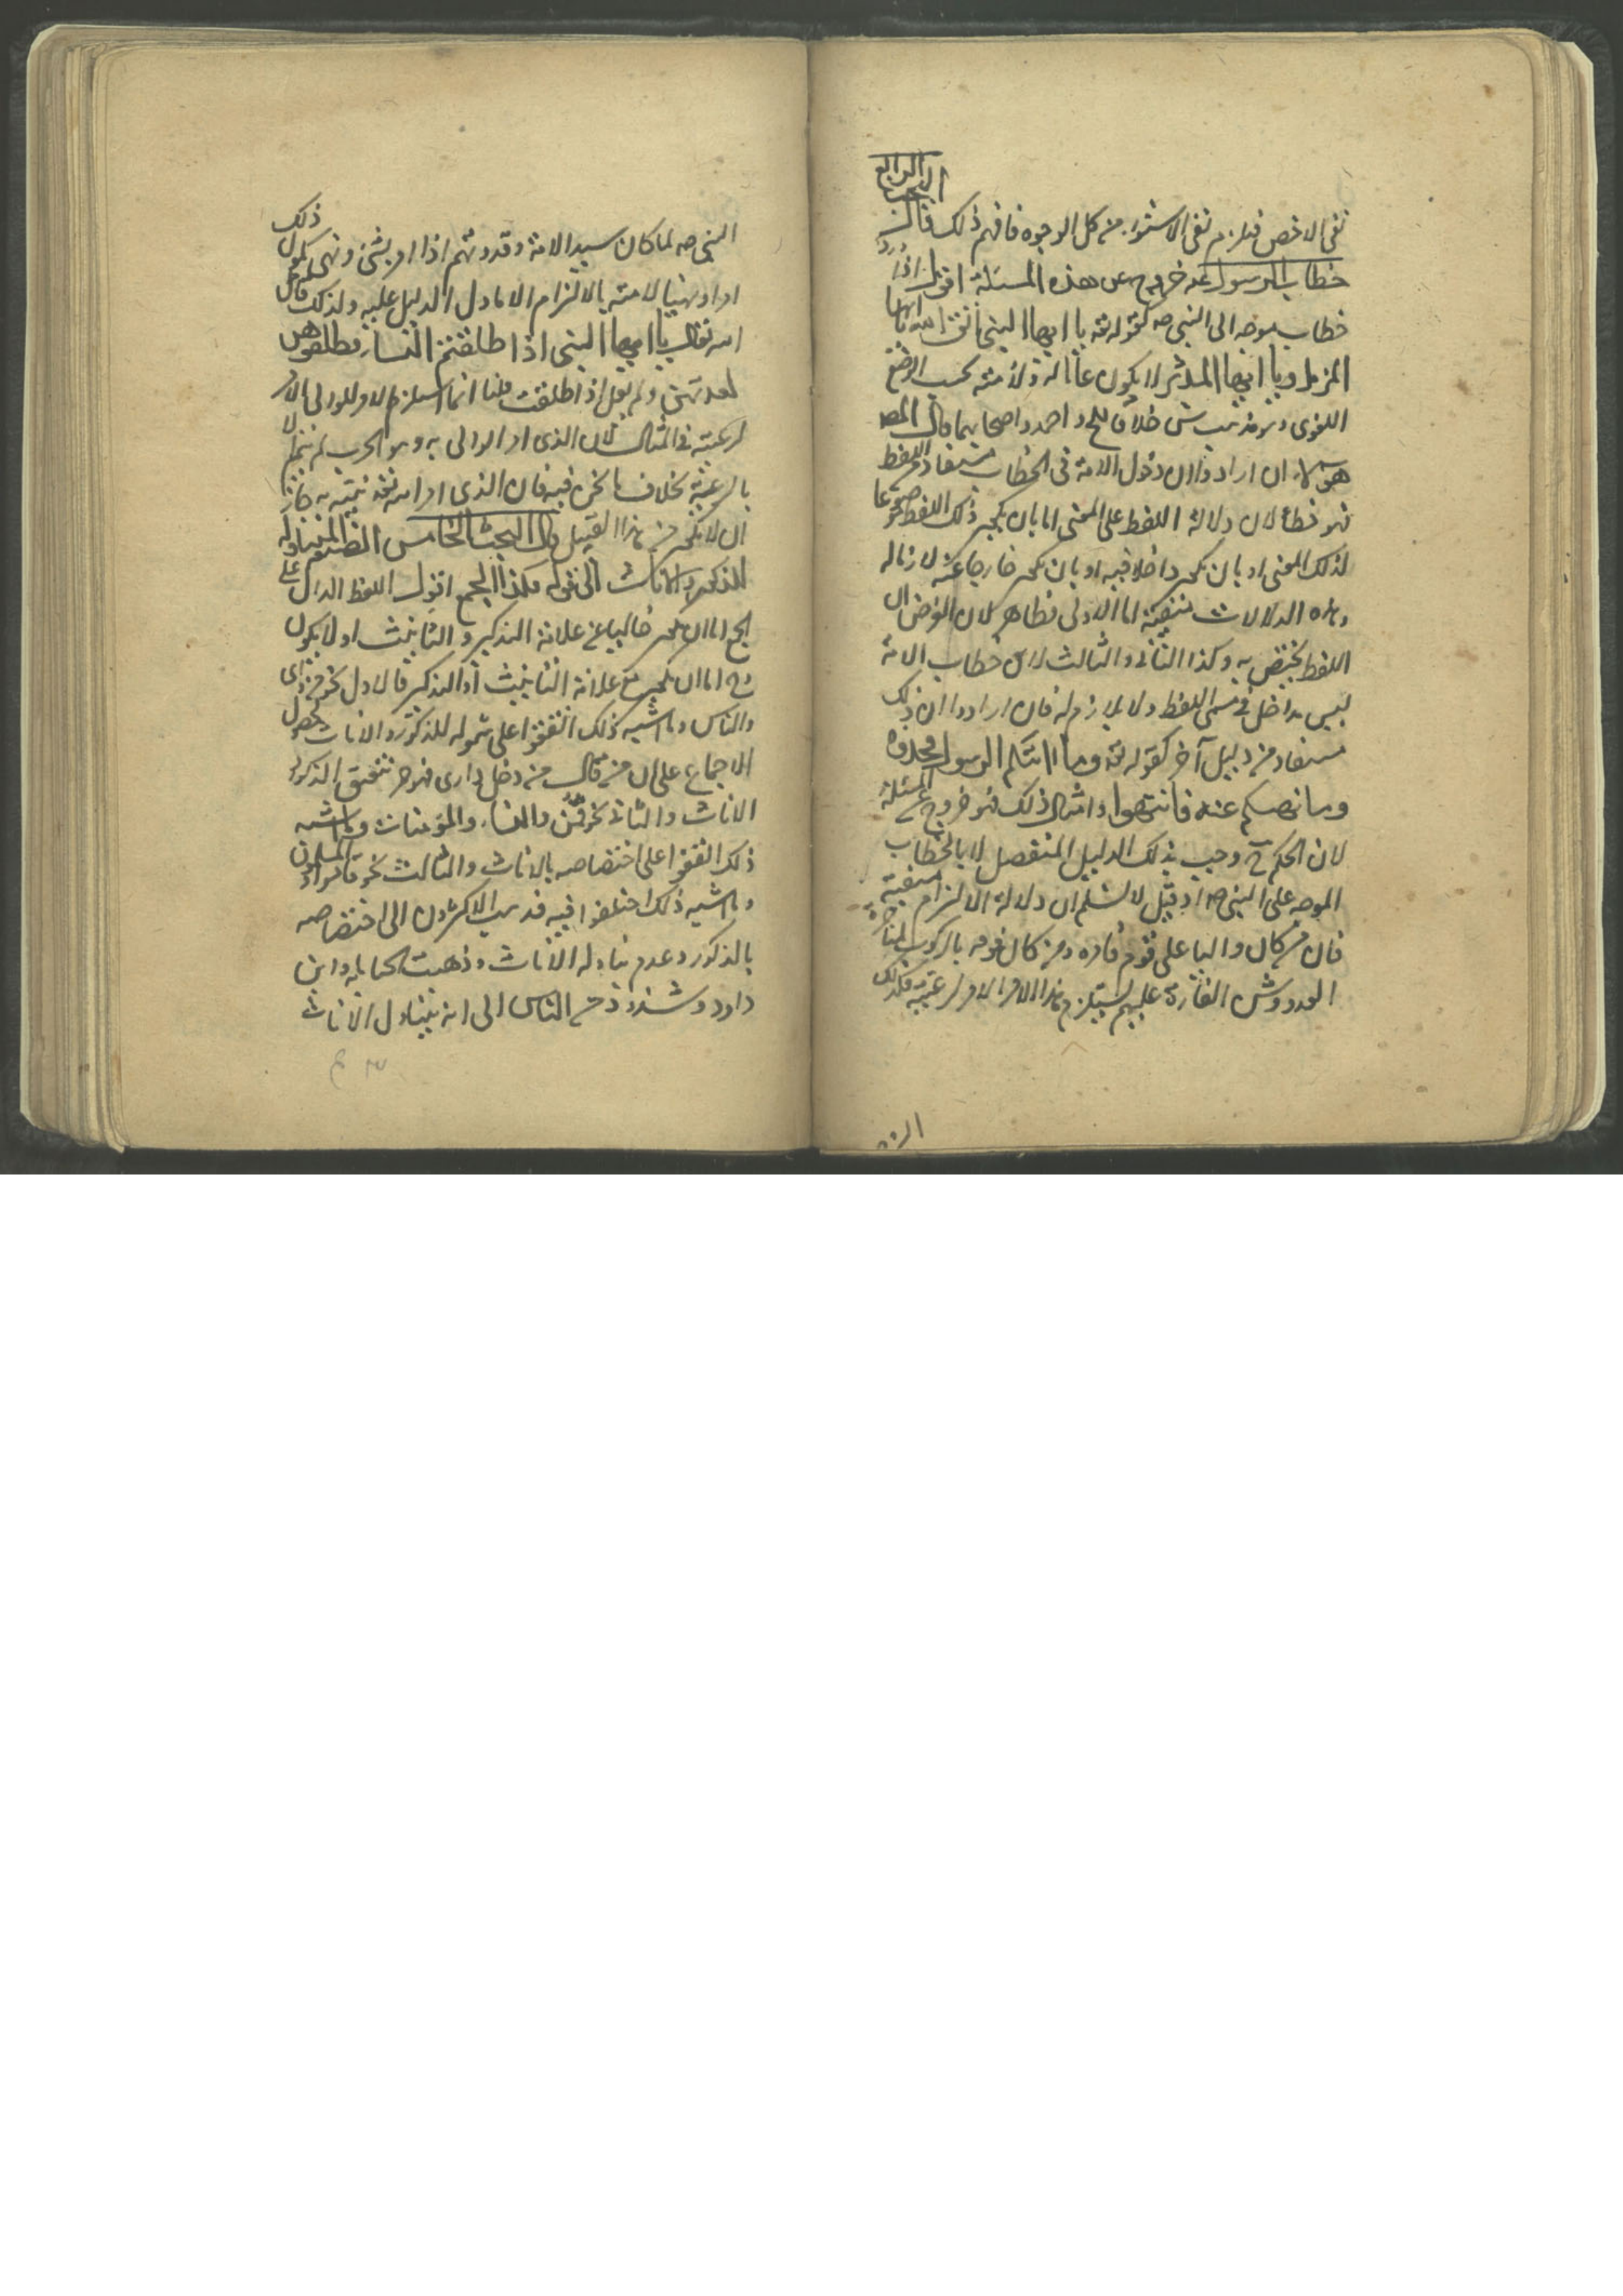 نفى الاخص فيلزم نفى الاستواء من كل الوجوه فافهم ذلك قال
البحث الرابع
خطاب الرسول عم خروج عن هذه المسئلة اقول اذا ورد
خطاب موجه الى النبى صم كقوله تعه يا ايها النبى اتق الله يا ايها
المزمل ويا ايها المدثر لا يكون عاما له ولامته بحسب الوضع
اللغوى وهو مذهب ش خلافا لح واحمد واصحابهما قال المصه
هؤلاء ان ارادوا ان دخول الامة فى الخطاب مستفاد من اللفظ
فهو خطأ لان دلالة اللفظ على المعنى اما بان يكون ذلك اللفظ موضوعا
لذلك المعنى او بان يكون داخلا فيه او بان يكون خارجا عنه لازما له
وهذه الدلالات منتفية اما الاولى فظاهر لان الفرض ان
اللفظ يختص به وكذا الثانى والثالث لان خطاب الامة
ليس بداخل فى مسمى اللفظ ولا لازم له فان ارادوا ان ذلك
مستفاد من دليل آخر كقوله تعه وما اتيكم الرسول فخذوه
وما نهيكم عنه فانتهوا وامثال ذلك فهو خروج عن المسئلة
لان الحكم ح وجب بذلك الدليل المنفصل لا بالخطاب
الموجه على النبى صم او قيل لا نسلم ان دلالة الالتزام منفية
فان من كان واليا على قوم قاده ومن كان غومه بالركوب لمناجزة
العدو وشن الغارة عليهم يستلزم هذا الامر الامر لرعيته فكذلك
النبى صم لما كان سيد الامة وقدوتهم اذا امر بشئ ونهى يكون ذلك
امرا ونهيا لامته بالالتزام الا ما دل الدليل عليه ولذلك قال
الله تعالى يا ايها النبى اذا طلقتم النساء فطلقوهن
لعدتهن ولم يقل اذا طلقت قلنا انما استلزم الامر للوالى الامر
لرعيته فى المثال لان الذى امر الوالى به وهو الحرب لم يتم الا
بالرعية بخلاف ما نحن فيه فان الذى امر الله تعه نبيه به جاز
ان لا يكون من هذا القبيل قال البحث الخامس المتناوله
للذكور والاناث الى قوله فكذا الجمع اقول اللفظ الدال على
الجمع اما ان يكون خاليا عن علامة التذكير والتانيث او لا يكون
وح اما ان يكون مع علامة التانيث او التذكير فالاول نحو من واى
والناس وما اشبه ذلك اتفقوا على شموله للذكور والاناث لحصول
الاجماع على ان من قال من دخل دارى فهو حر تنعتق الذكور
الاناث والثانى نحو قمن والنساء والمؤمنات وما اشبه
ذلك اتفقوا على اختصاصه بالاناث والثالث نحو قاموا والمسلمون
وما اشبه ذلك اختلفوا فيه فذهب الاكثرون الى اختصاصه
بالذكور وعدم تناوله الاناث وذهبت الحنابلة وابن
داود وشذوذ من الناس الى انه يتناول الاناث